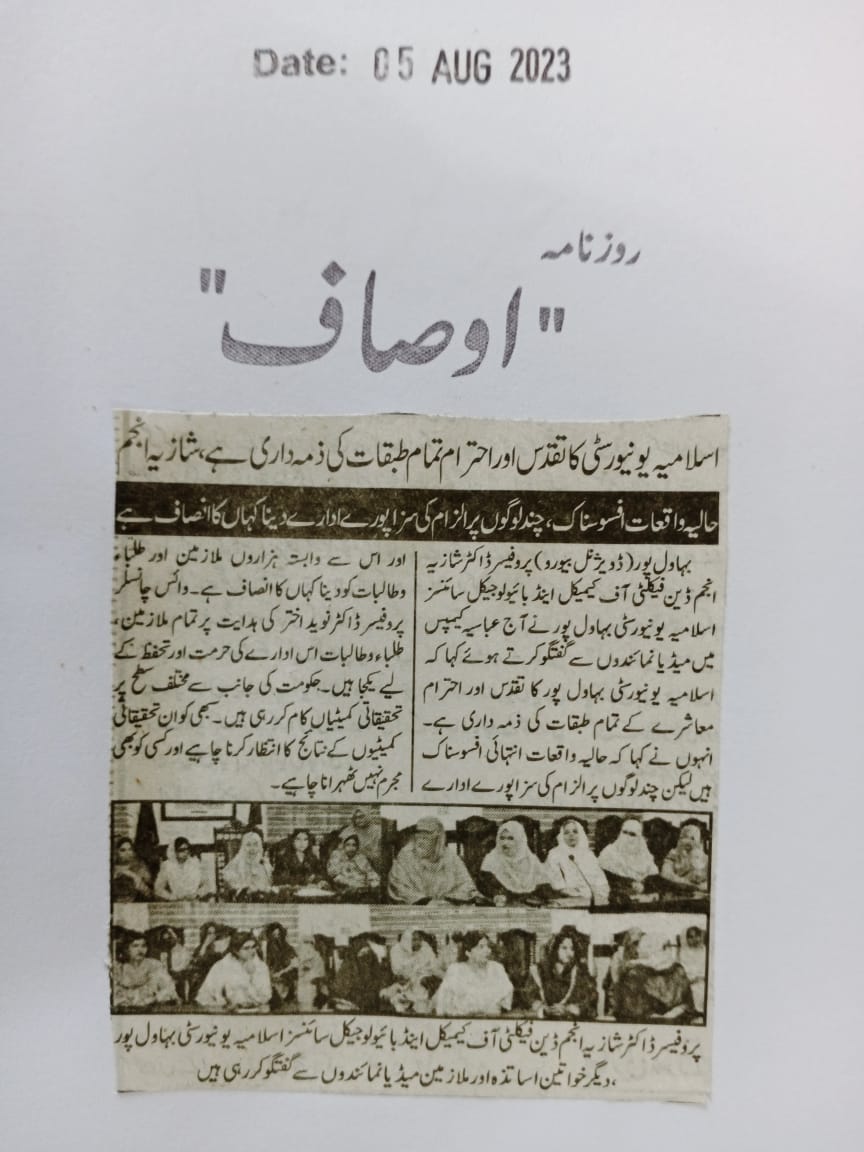 Date: 05 AUG 2023
روزنامہ
"اوصاف"
اسلامیہ یونیورسٹی کا تقدس اور احترام تمام طبقات کی ذمہ داری ہے، شازیہ انجم
حالیہ واقعات افسوسناک، چند لوگوں پر الزام کی سزا پورے ادارے دینا کہاں کا انصاف ہے
بہاول پور (ڈویژنل بیورو) پروفیسر ڈاکٹر شازیہ
انجم ڈین فیکلٹی آف کیمیکل اینڈ بائیولوجیکل سائنسز
اسلامیہ یونیورسٹی بہاول پور نے آج عباسیہ کیمپس
میں میڈیا نمائندوں سے گفتگو کرتے ہوئے کہا کہ
اسلامیہ یونیورسٹی بہاول پور کا تقدس اور احترام
معاشرے کے تمام طبقات کی ذمہ داری ہے۔
انہوں نے کہا کہ حالیہ واقعات انتہائی افسوسناک
ہیں لیکن چند لوگوں پر الزام کی سزا پورے ادارے
اور اس سے وابستہ ہزاروں ملازمین اور طلباء
وطالبات کو دینا کہاں کا انصاف ہے۔ وائس چانسلر
پروفیسر ڈاکٹر نوید اختر کی ہدایت پر تمام ملازمین،
طلباء وطالبات اس ادارے کی حرمت اور تحفظ کے
لیے یکجا ہیں۔ حکومت کی جانب سے مختلف سطح پر
تحقیقاتی کمیٹیاں کام کر رہی ہیں۔ سبھی کو ان تحقیقاتی
کمیٹیوں کے نتائج کا انتظار کرنا چاہیے اور کسی کو بھی
مجرم نہیں ٹھہرانا چاہیے۔
پروفیسر ڈاکٹر شازیہ انجم ڈین فیکلٹی آف کیمیکل اینڈ بائیولوجیکل سائنسز اسلامیہ یونیورسٹی بہاول پور
،دیگر خواتین اساتذہ اور ملازمین میڈیا نمائندوں سے گفتگو کر رہی ہیں